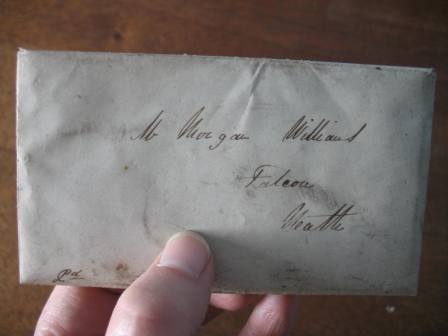 Mr Morgan Williams
Falcon
Neath
Pd